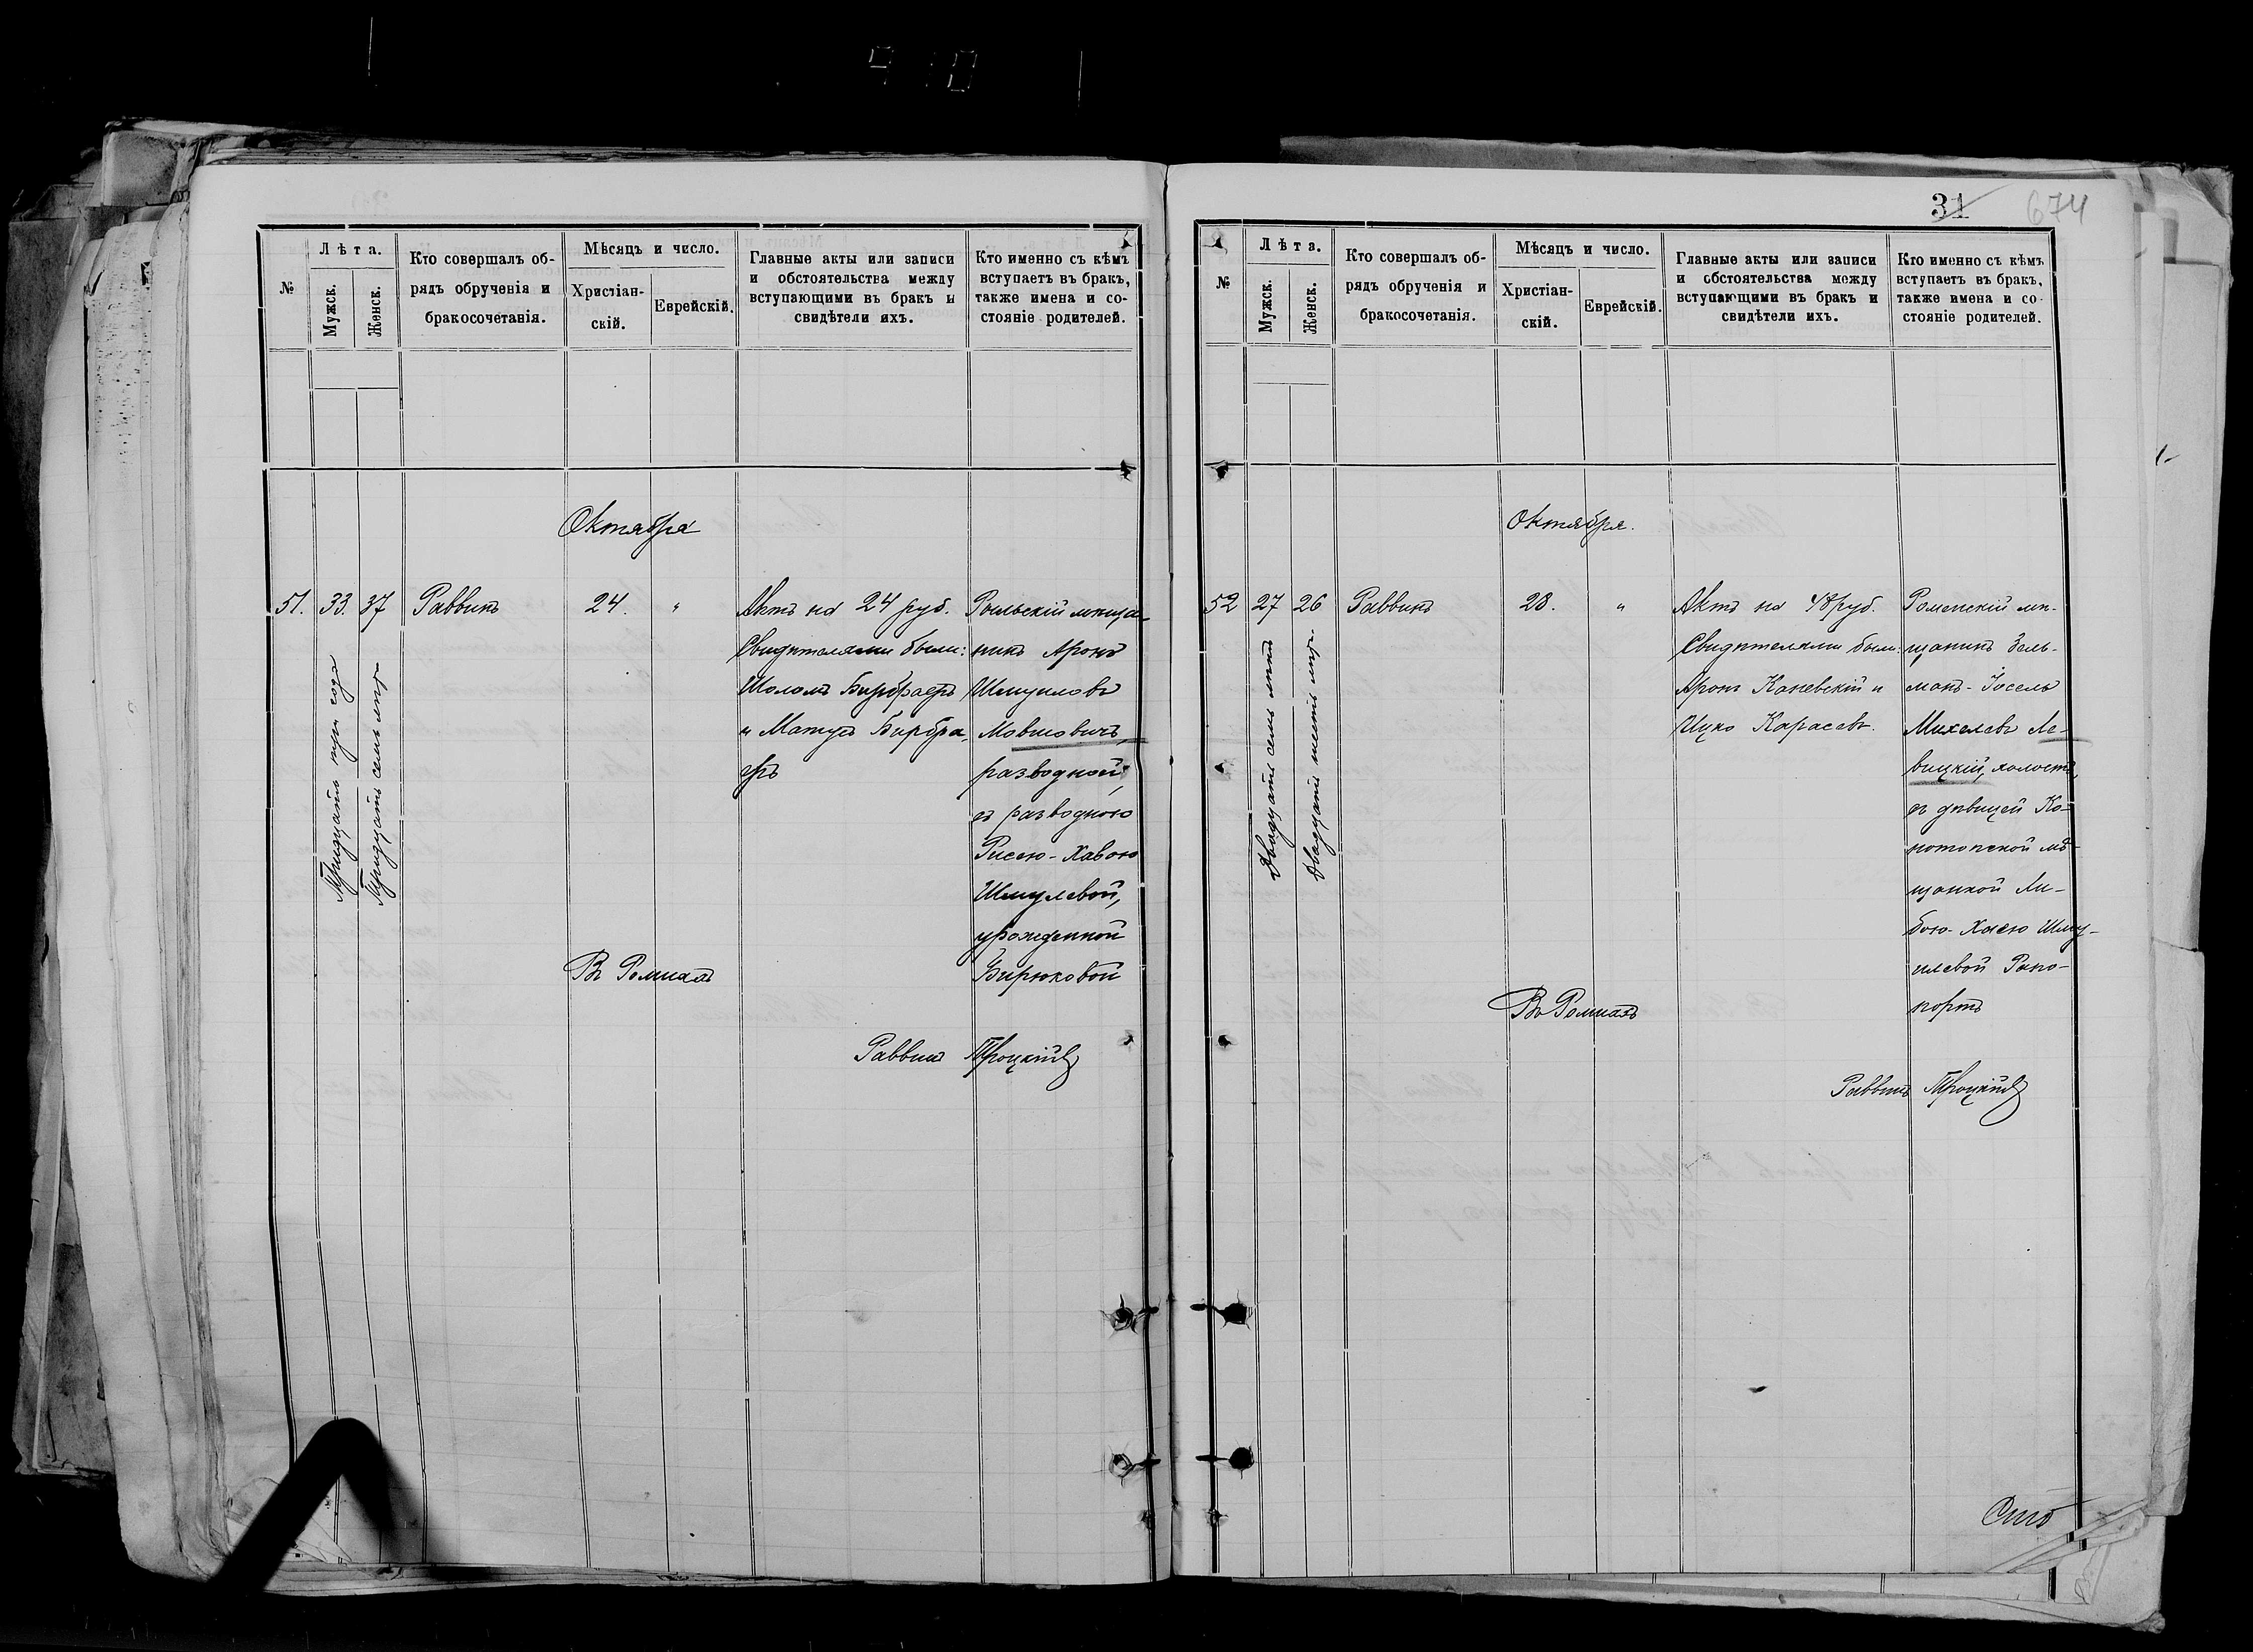 31 674
№
Лѣта.
Мужск.
Женск.
Кто совершалъ об-
рядъ обрученія и
бракосочетанія.
Мѣсяцъ и число.
Христіан-
скій.
Еврейскій.
Главные акты или записи
и обстоятельства между
вступающими въ бракъ и
свидѣтели ихъ.
Кто именно съ кѣмъ
вступаетъ въ бракъ,
также имена и со-
стояніе родителей.
Октября
51.
33.
Тридцать три года
37
Тридцать семь лѣтъ
Раввинъ
24.
"
Актъ на 24 руб.
Свидѣтелями были:
Шоломъ
и
Рыльскій мѣща-
нинъ Аронъ
Шмуиловъ
Мовшовичъ,
разводной,
съ разводною
Рисею-Хавою
Шмулевой,
урожденной
Бирюковой
Въ Ромнахъ
Раввинъ Троцкій
№
Лѣта.
Мужск.
Женск.
Кто совершалъ об-
рядъ обрученія и
бракосочетанія.
Мѣсяцъ и число.
Христіан-
скій.
Еврейскій.
Главные акты или записи
и обстоятельства между
вступающими въ бракъ и
свидѣтели ихъ.
Кто именно съ кѣмъ
вступаетъ въ бракъ,
также имена и со-
стояніе родителей.
Октября.
52
27
Двадцать семь лѣтъ
26
Двадцать шесть лѣтъ
Раввинъ
28.
"
Актъ на 48 руб.
Свидѣтелями были:
Аронъ Каневскій и
Ицко Карасевъ.
Роменскій мѣ-
щанинъ Зель-
манъ-Іосель
Михелевъ Ле-
вицкій, холостъ,
съ дѣвицей Ко-
нотопской мѣ-
щанкой Ли-
бою-Хасею Шму-
илевой Рапо-
портъ
Въ Ромнахъ
Раввинъ Троцкій